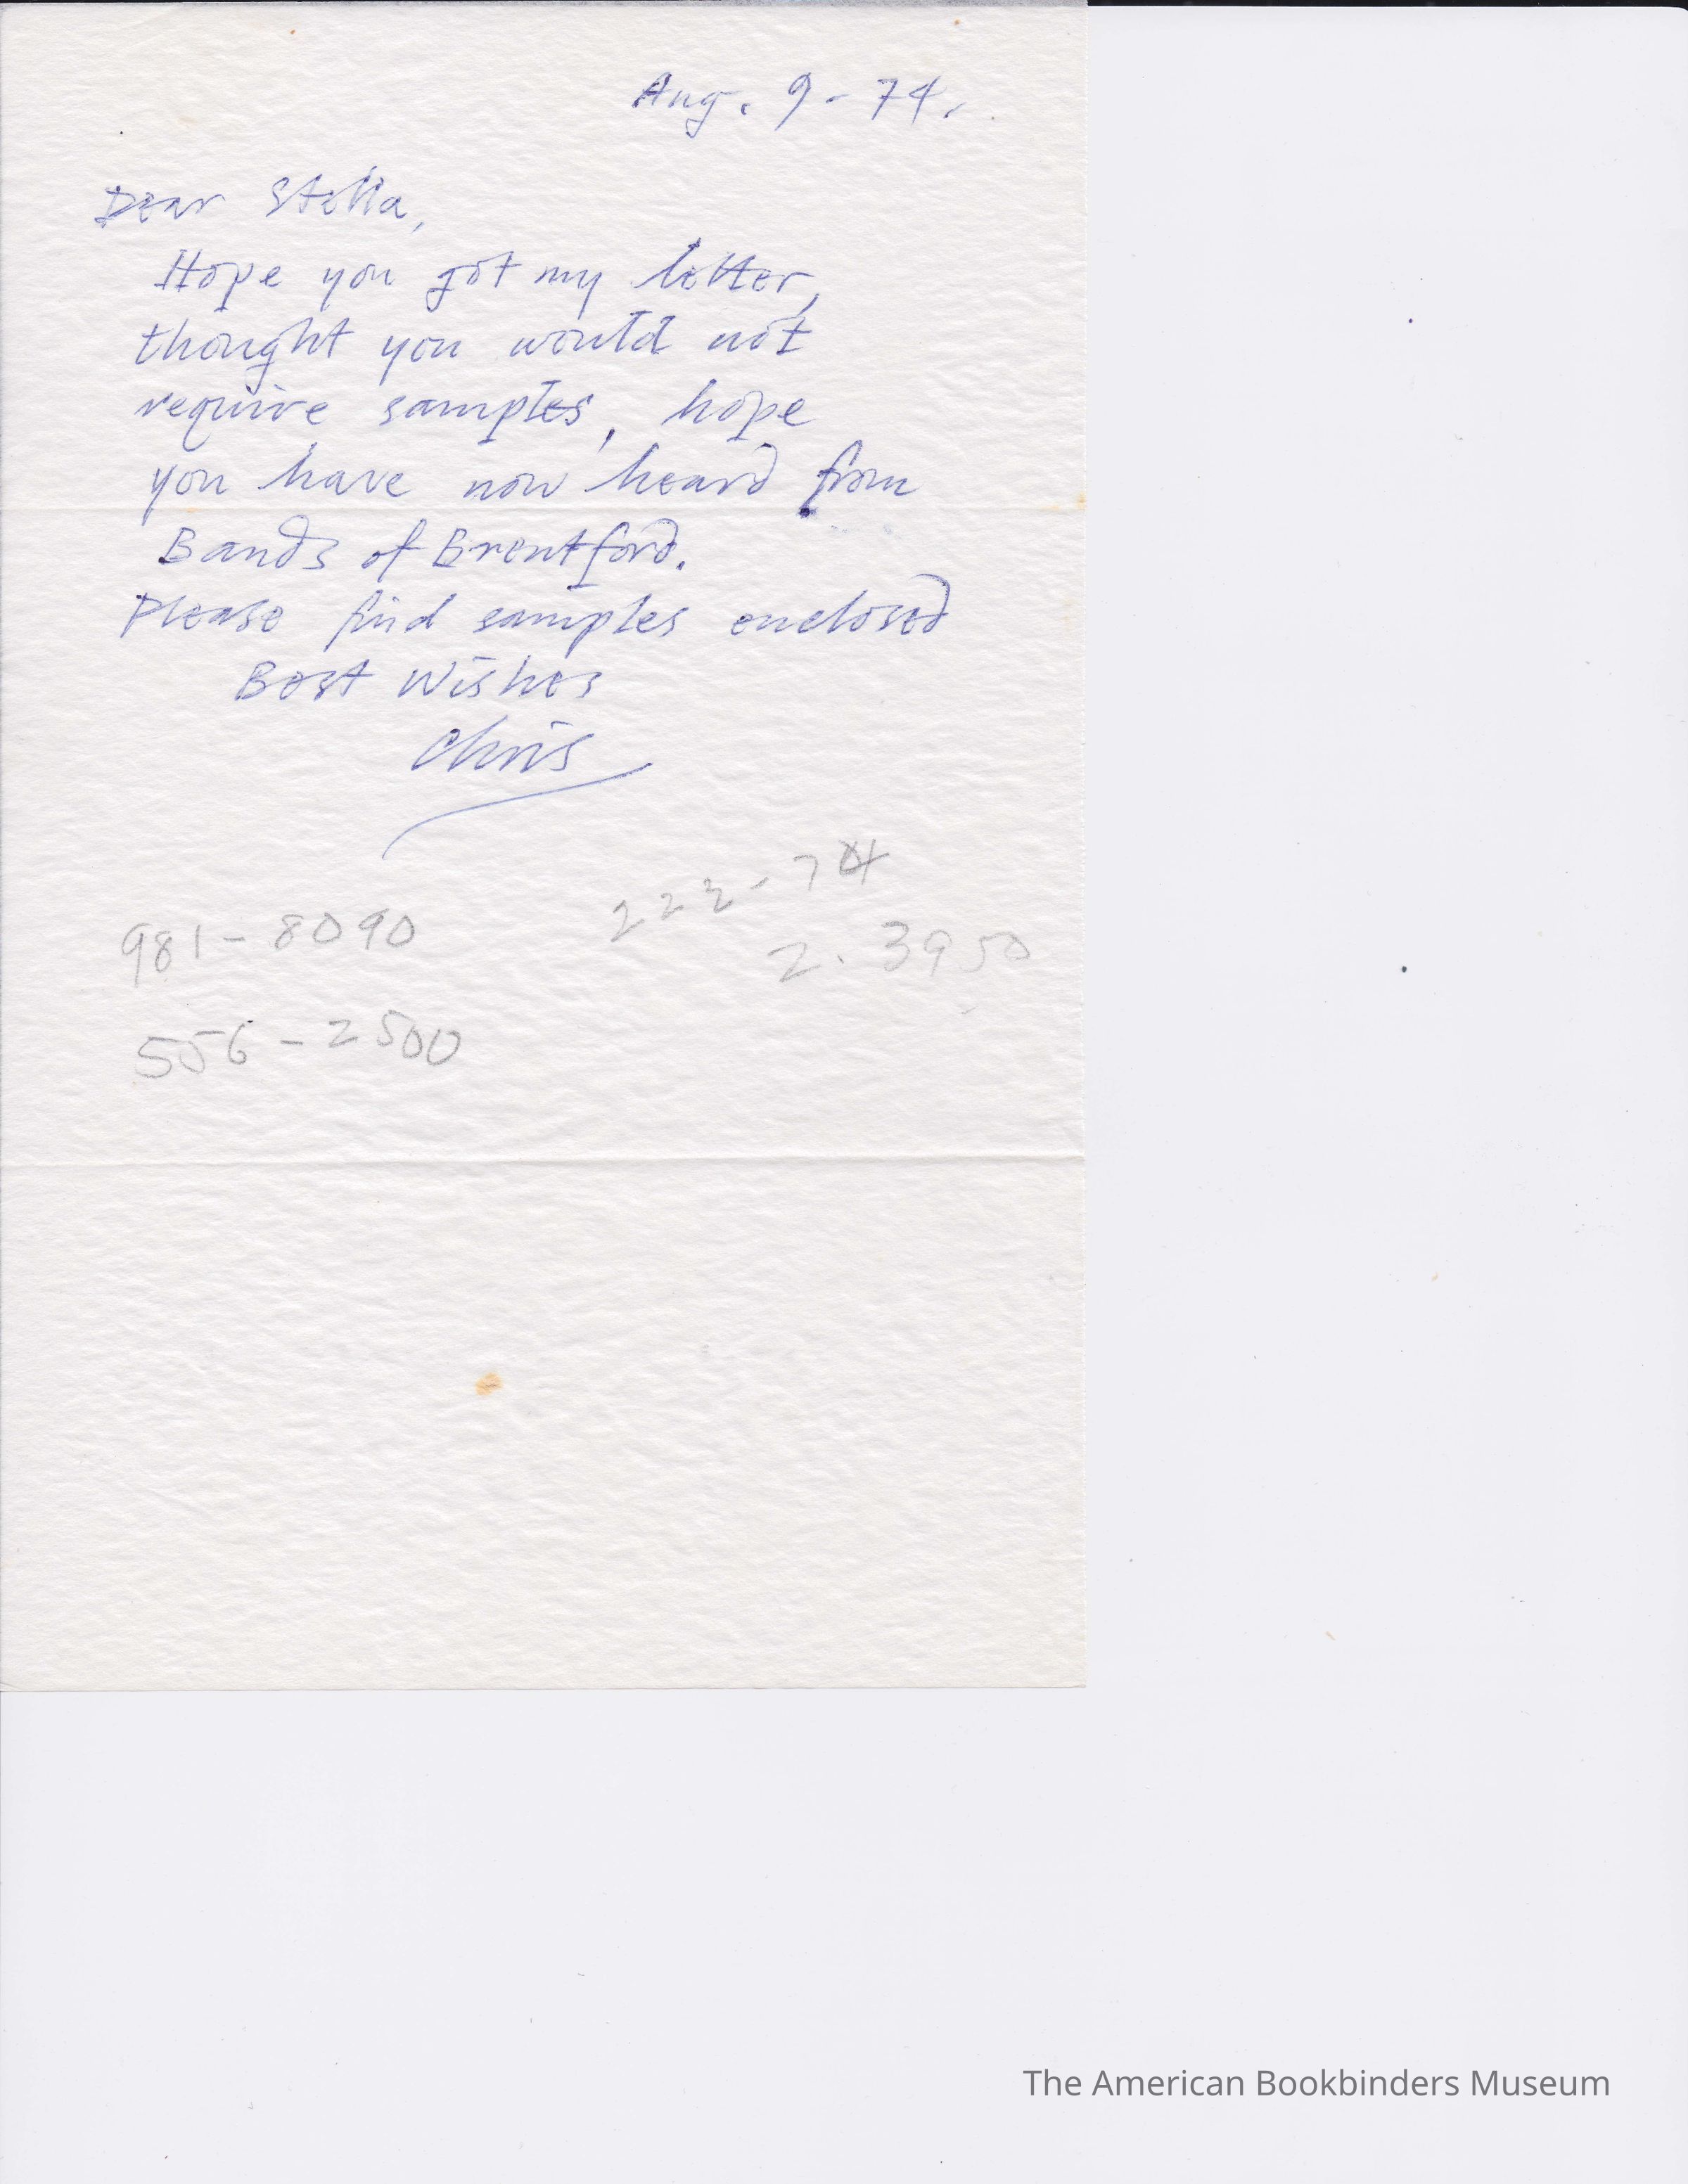 Aug. 9 - 74.
Dear Stella,
Hope you got my letter,
thought you would not
require samples, hope
you have now heard from
Bands of Brentford.
Please find samples enclosed
Best Wishes
Chris
222-74
981-8090
2.3950
556-2500
The American Bookbinders Museum